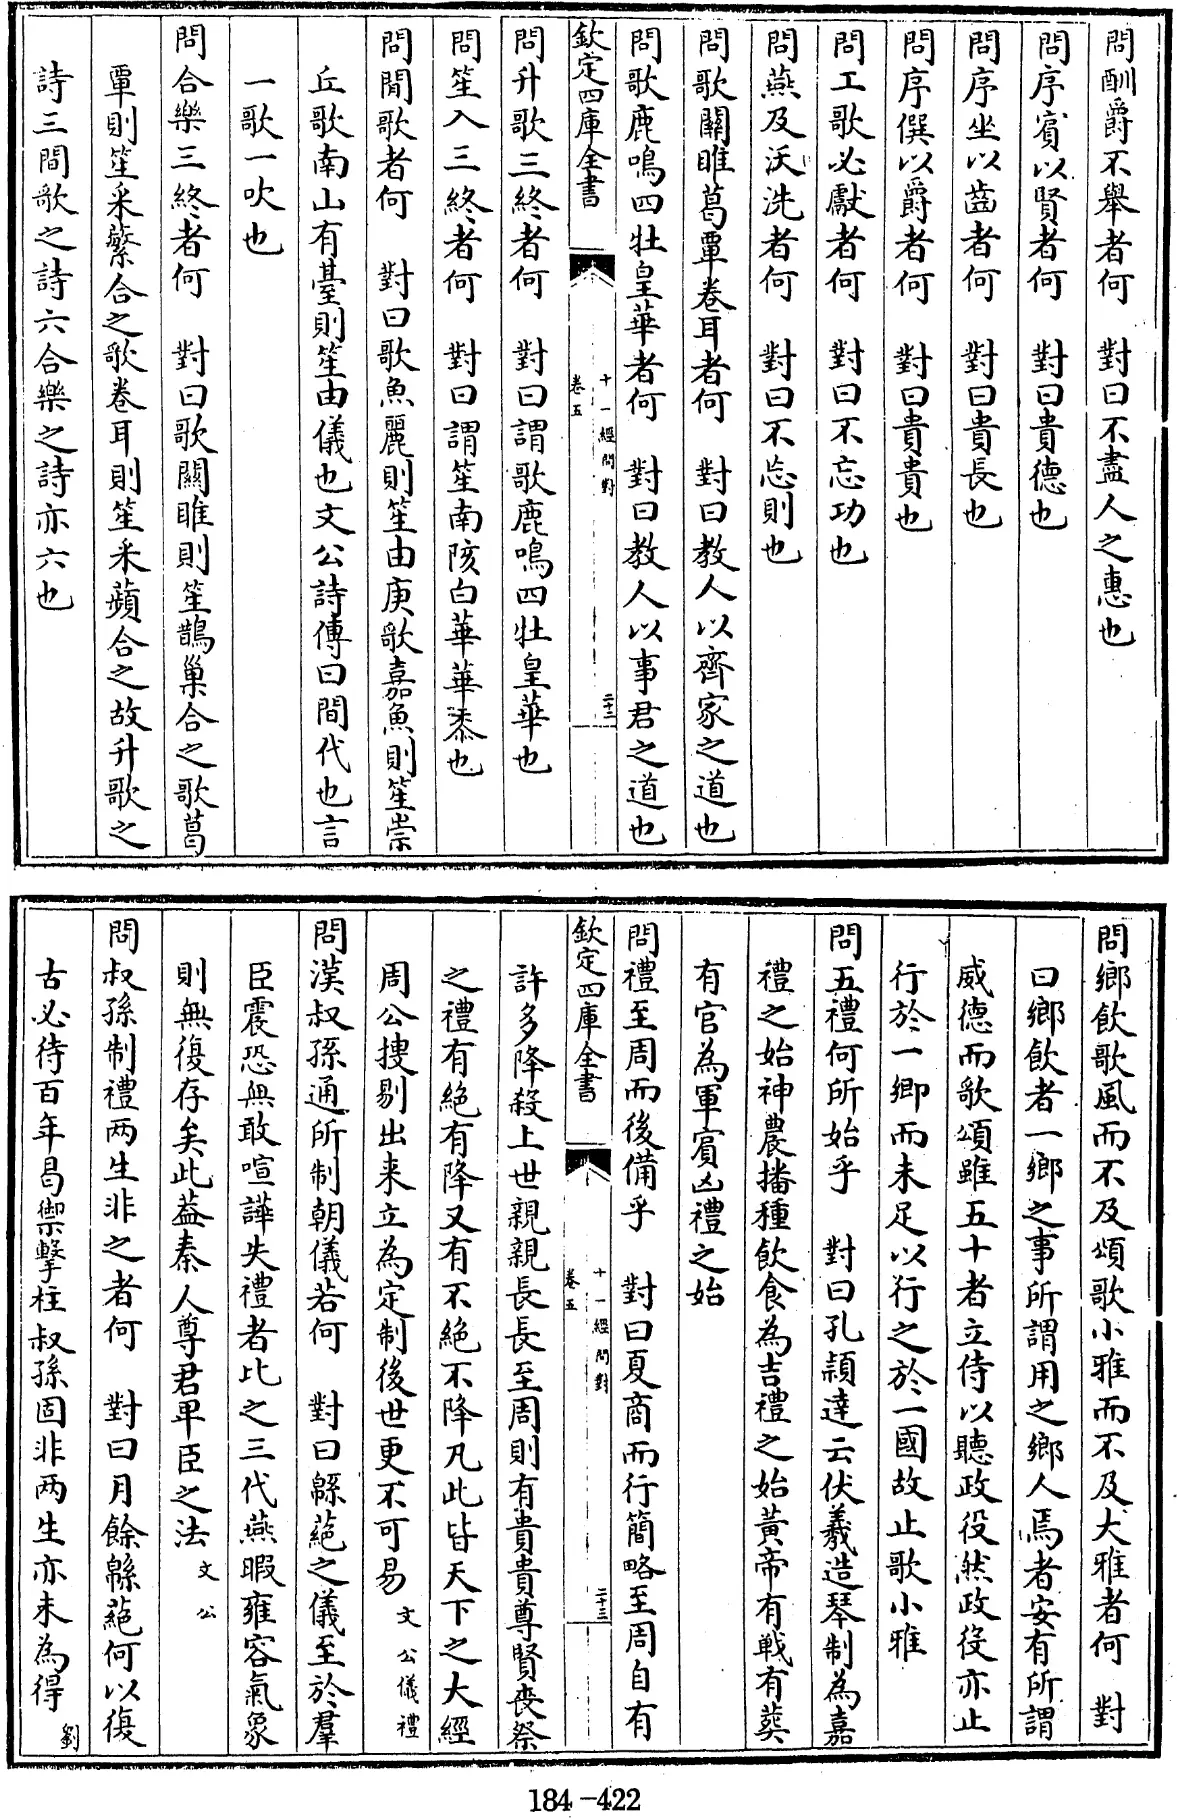 問酬爵不舉者何　對曰不盡人之惠也
問序賔以賢者何　對曰貴德也
問序坐以齒者何　對曰貴長也
問序僎以爵者何　對曰貴貴也
問工歌必獻者何　對曰不忘功也
問燕及沃洗者何　對曰不忘則也
問歌關雎葛覃卷耳者何　對曰教人以齊家之道也
問歌鹿鳴四牡皇華者何　對曰教人以事君之道也
欽定四庫全書　卷五　十一經問對　二十二
問升歌三終者何　對曰謂歌鹿鳴四牡皇華也
問笙入三終者何　對曰謂笙南陔白華華黍也
問閒歌者何　對曰歌魚麗則笙由庚歌嘉魚則笙崇
丘歌南山有臺則笙由儀也文公詩傳曰間代也言
一歌一吹也
問合樂三終者何　對曰歌關雎則笙鵲巢合之歌葛
覃則笙采蘩合之歌卷耳則笙采蘋合之故升歌之
詩三間歌之詩六合樂之詩亦六也
問鄉飲歌風而不及頌歌小雅而不及大雅者何　對
曰鄉飲者一鄉之事所謂用之鄉人焉者安有所謂
威德而歌頌雖五十者立侍以聽政役然政役亦止
行於一鄉而未足以行之於一國故止歌小雅
問五禮何所始乎　對曰孔頴達云伏羲造琴制為嘉
禮之始神農播種飲食為吉禮之始黃帝有戰有葬
有官為軍賔凶禮之始
問禮至周而後備乎　對曰夏商而行簡略至周自有
欽定四庫全書　卷五　十一經問對　二十三
許多降殺上世親親長長至周則有貴貴尊賢喪祭
之禮有絶有降又有不絶不降凡此皆天下之大經
周公搜剔出来立為定制後世更不可易　文公儀禮
問漢叔孫通所制朝儀若何　對曰緜蕝之儀至於羣
臣震恐無敢喧譁失禮者比之三代燕暇雍容氣象
則無復存矣此葢秦人尊君卑臣之法　文公
問叔孫制禮两生非之者何　對曰月餘緜蕝何以復
古必待百年曷禦擊柱叔孫固非两生亦未為得　劉
184-422